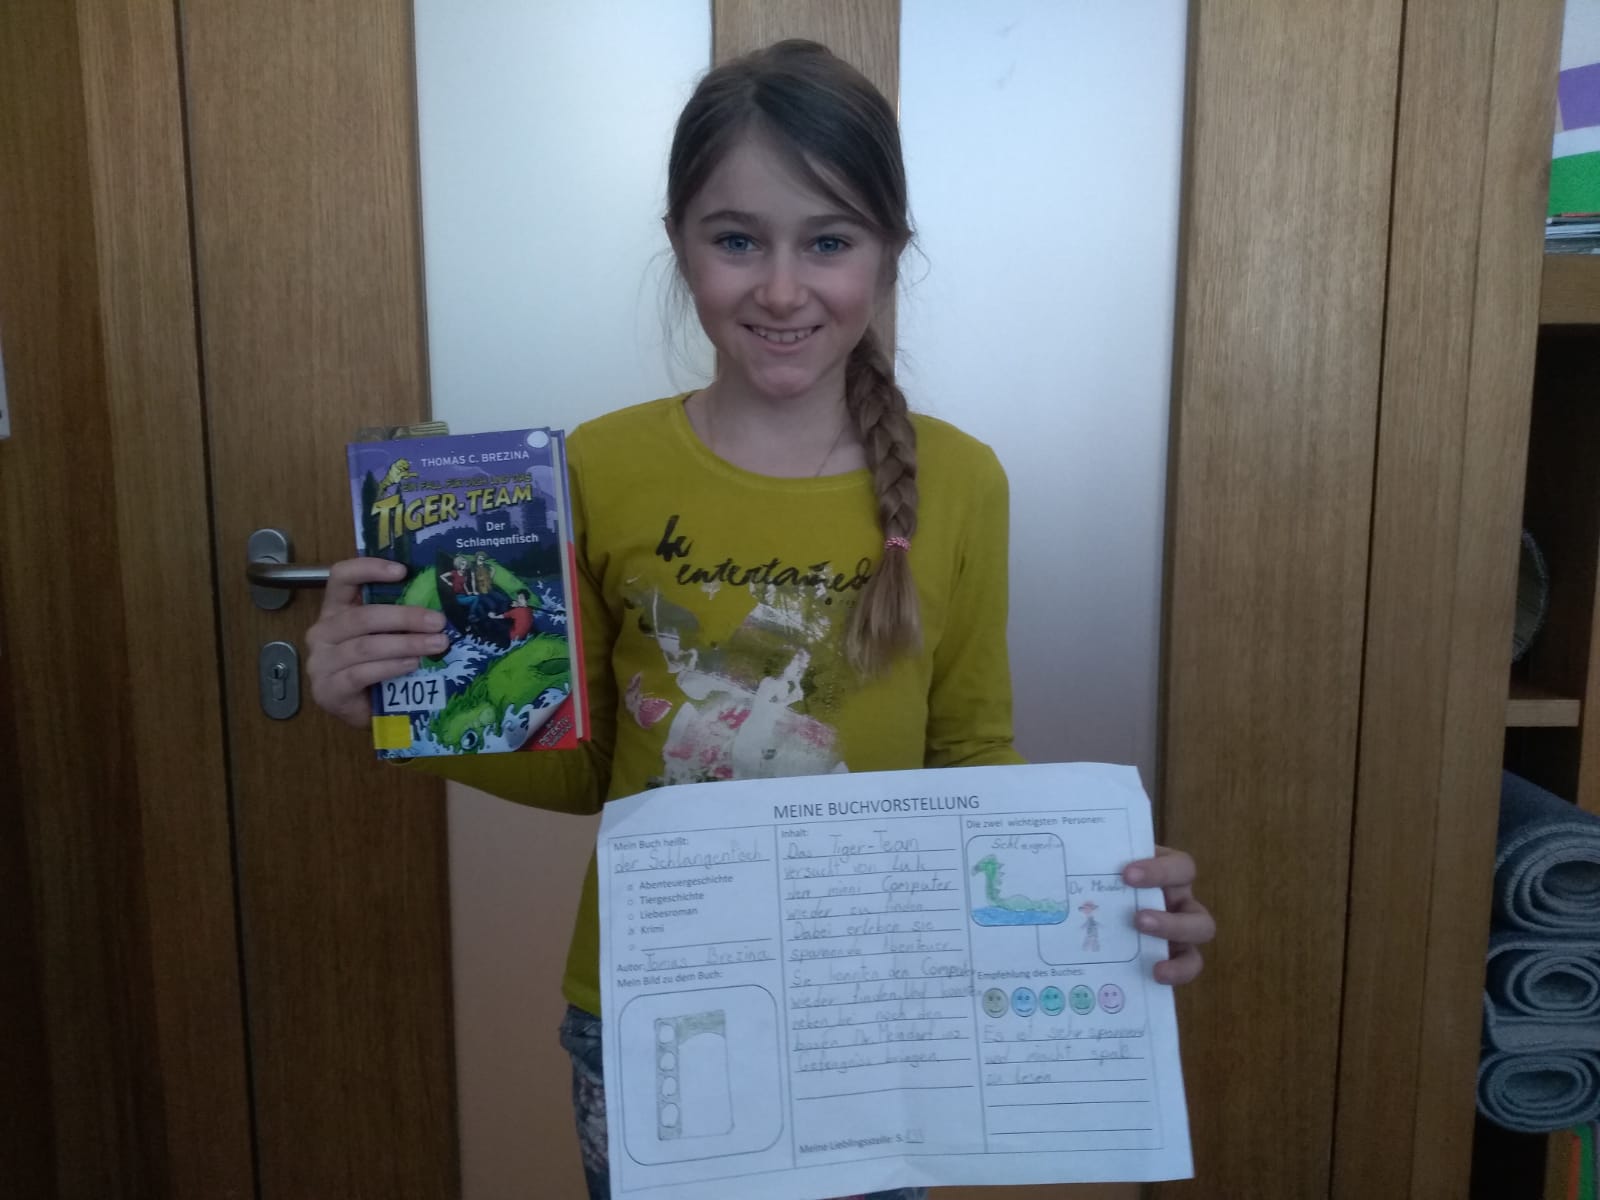 THOMAS C. BREZINA
EIN FALL FÜR DICH UND DAS
TIGER-TEAM
Der
Schlangenfisch
2107
be
entertained
MEINE BUCHVORSTELLUNG
Mein Buch heißt:
der Schlangenfisch
Abenteuergeschichte
Tiergeschichte
Liebesroman
Krimi
Autor: Tomas Brezina
Mein Bild zu dem Buch:
Inhalt:
Das Tiger-Team
versucht von Luk
den minni Computer
wieder zu finden.
Dabei erleben sie
spannende Abenteuer.
Sie konnten den Computer
wieder finden, und
neben bei noch den
bösen Dr.
Gefengnis bringen.
Meine Lieblingsstelle: S.
Die zwei wichtigsten Personen:
Schlangenfi
Dr.
Empfehlung des Buches:
Es ist sehr spannend
und macht spaß
zu lesen